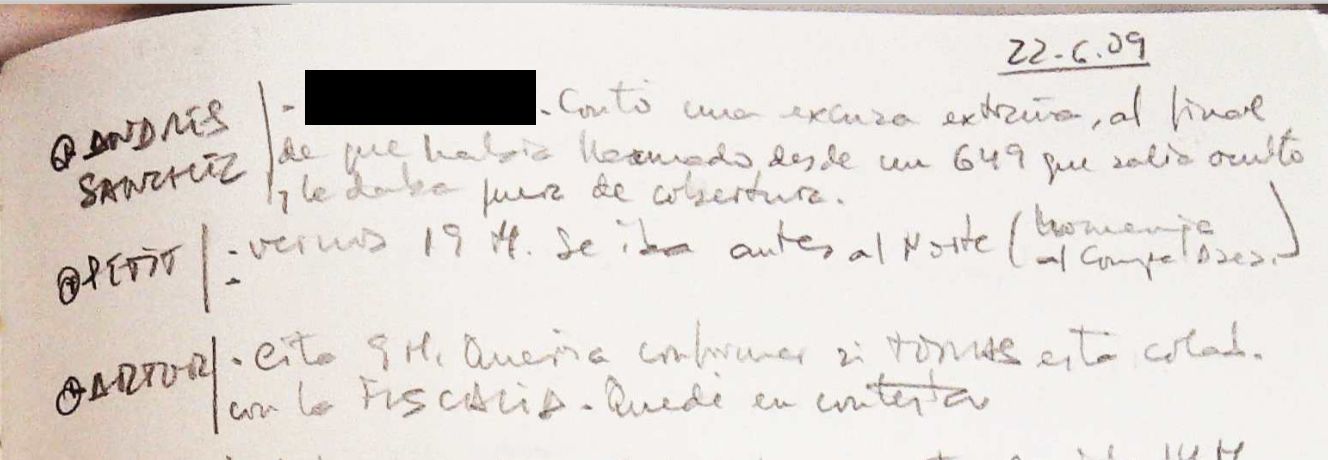 22-6.09
ANDRES SANCHEZ | - . Contó una excusa extraña, al final
de que había llamado desde un 649 que salía oculto
y le daba fuera de cobertura.
PETIT | - vernos 19 H. Se iba antes al Norte (homenaje
al Compa
ARTUR | - Cita 9 H. Quería confirmar si TOMAS está colab.
con la FISCALIA - Quedé en contestar
14 H